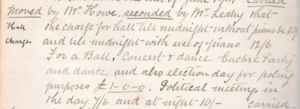 moved by Mr Howe, seconded by Mr Leahy that
Hall the charge for hall till midnight without piano be 10/
Charges and till midnight with use of piano 12/6
For a Ball, Concert & dance Euchre Party
and dance and also election day for polling
purpose £1-0-0. Political meeting in
the day 7/6 and at night 10/- carried